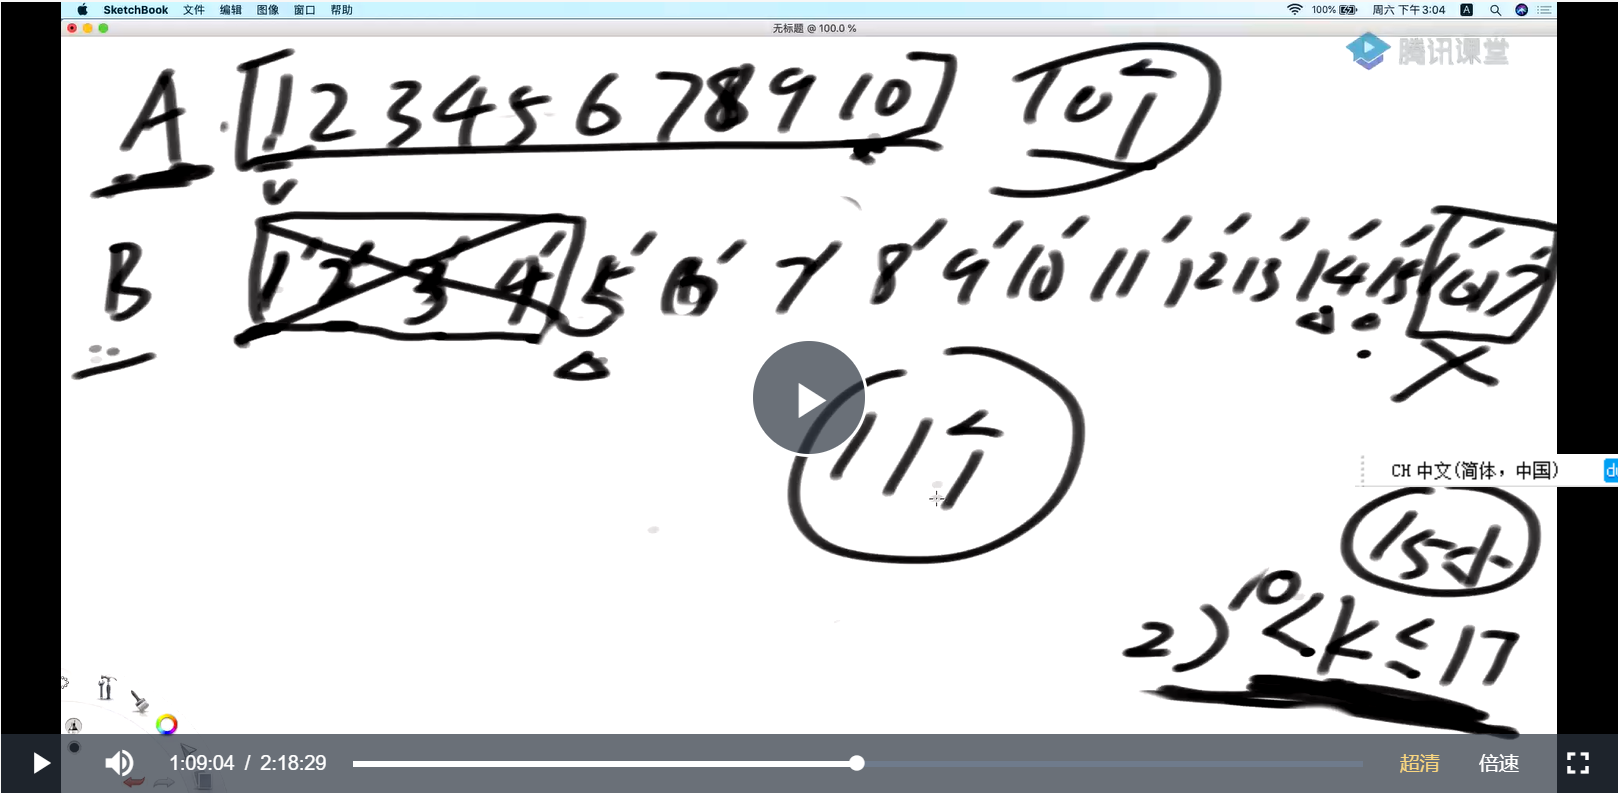 SketchBook 文件 编辑 图像 窗口 帮助 100% 周六 下午3:04 A
无标题 @ 100.0 %
腾讯课堂
A [1 2 3 4 5 6 7 8 9 10] 10个
B 1' 2' 3' 4' 5' 6' 7' 8' 9' 10' 11' 12' 13' 14' 15' 16' 17'
11个
CH 中文(简体，中国)
15小
2) 10<k≤17
1:09:04 / 2:18:29 超清 倍速